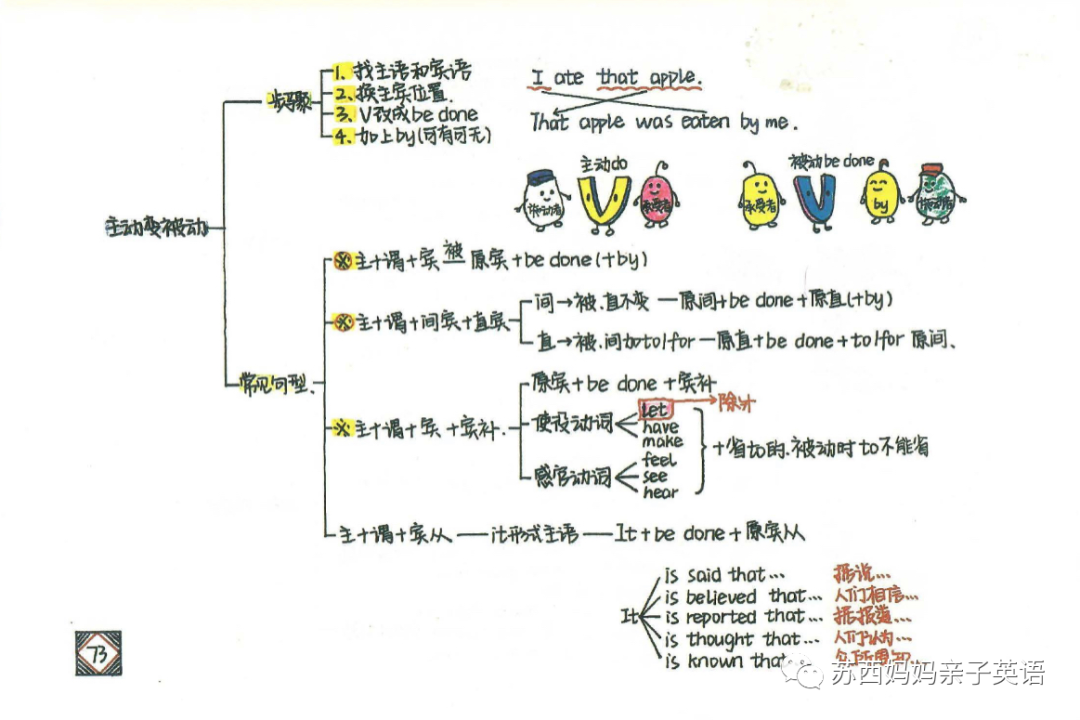 主动变被动
步骤
1、找主语和宾语
2、换主宾位置.
3、V改成be done
4、加上by(可有可无)
I ate that apple.
That apple was eaten by me.
主动do
施动者
V
承受者
被动be done
承受者
V
by
施动者
常见句型、
※主+谓+宾 被 原宾+be done(+by)
※主+谓+间宾+直宾
间→被.直不变 — 原间+be done+原直(+by)
直→被.间加to/for — 原直+be done+to/for 原间、
※主+谓+宾+宾补.
原宾+be done+宾补
使役动词
let → 除外
have
make
感官动词
feel
see
hear
+省to的.被动时to不能省
主+谓+宾从 — it形式主语 — It+be done+原宾从
It
is said that… 据说…
is believed that… 人们相信…
is reported that… 据报道…
is thought that… 人们认为…
is known that… 众所周知…
73
苏西妈妈亲子英语